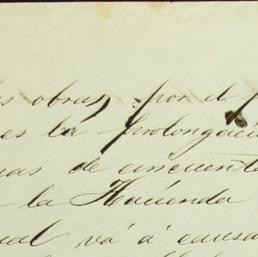 obras, por el
es la prolongación
mas de cincuenta
la Hacienda
ual vá á causa